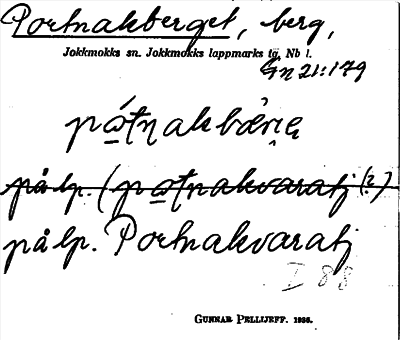 Portnakberget, berg,
Jokkmokks sn. Jokkmokks lappmarks tg, Nb l.
Gn 21:179
på lp. (
(?)
på lp. Portnakvaratj
I 88
GUNNAR PELLIJEFF. 1956.